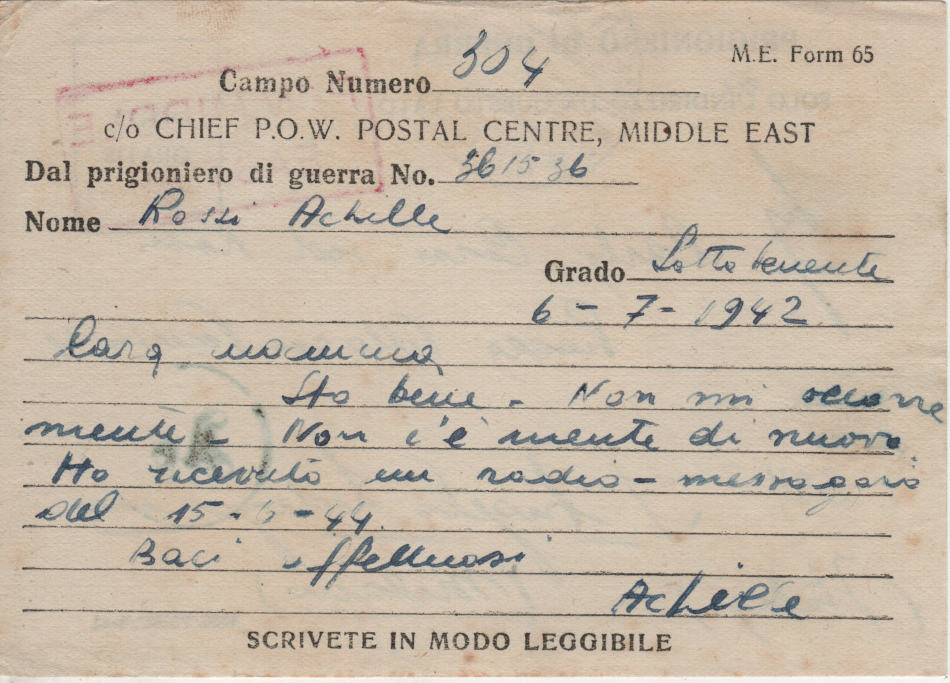 M.E. Form 65
Campo Numero 304
c/o CHIEF P.O.W. POSTAL CENTRE, MIDDLE EAST
Dal prigioniero di guerra No. 361536
Nome Rossi Achille
Grado Sottotenente
6 - 7 - 1942
Cara mamma
Sto bene - Non mi occorre
niente - Non c'è niente di nuovo
Ho ricevuto un radio - messaggio
del 15 - 6 - 44.
Baci affettuosi
Achille
SCRIVETE IN MODO LEGGIBILE